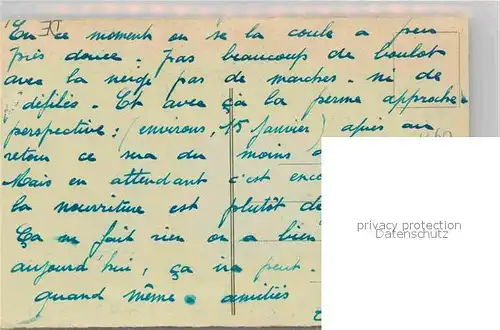 En ce moment on se la coule a peu
près douce : pas beaucoup de boulot
avec la neige pas de marches - ni de
défilés - Et avec ça la perme approche
perspective : (environs, 15 Janvier) après au
retour ce sera du moins
Mais en attendant c'est enco
la nourriture est plutôt d
Ça en fait rien on a bien
aujourd'hui, ça ira peut-
quand même. amitiés
privacy protection
Datenschutz